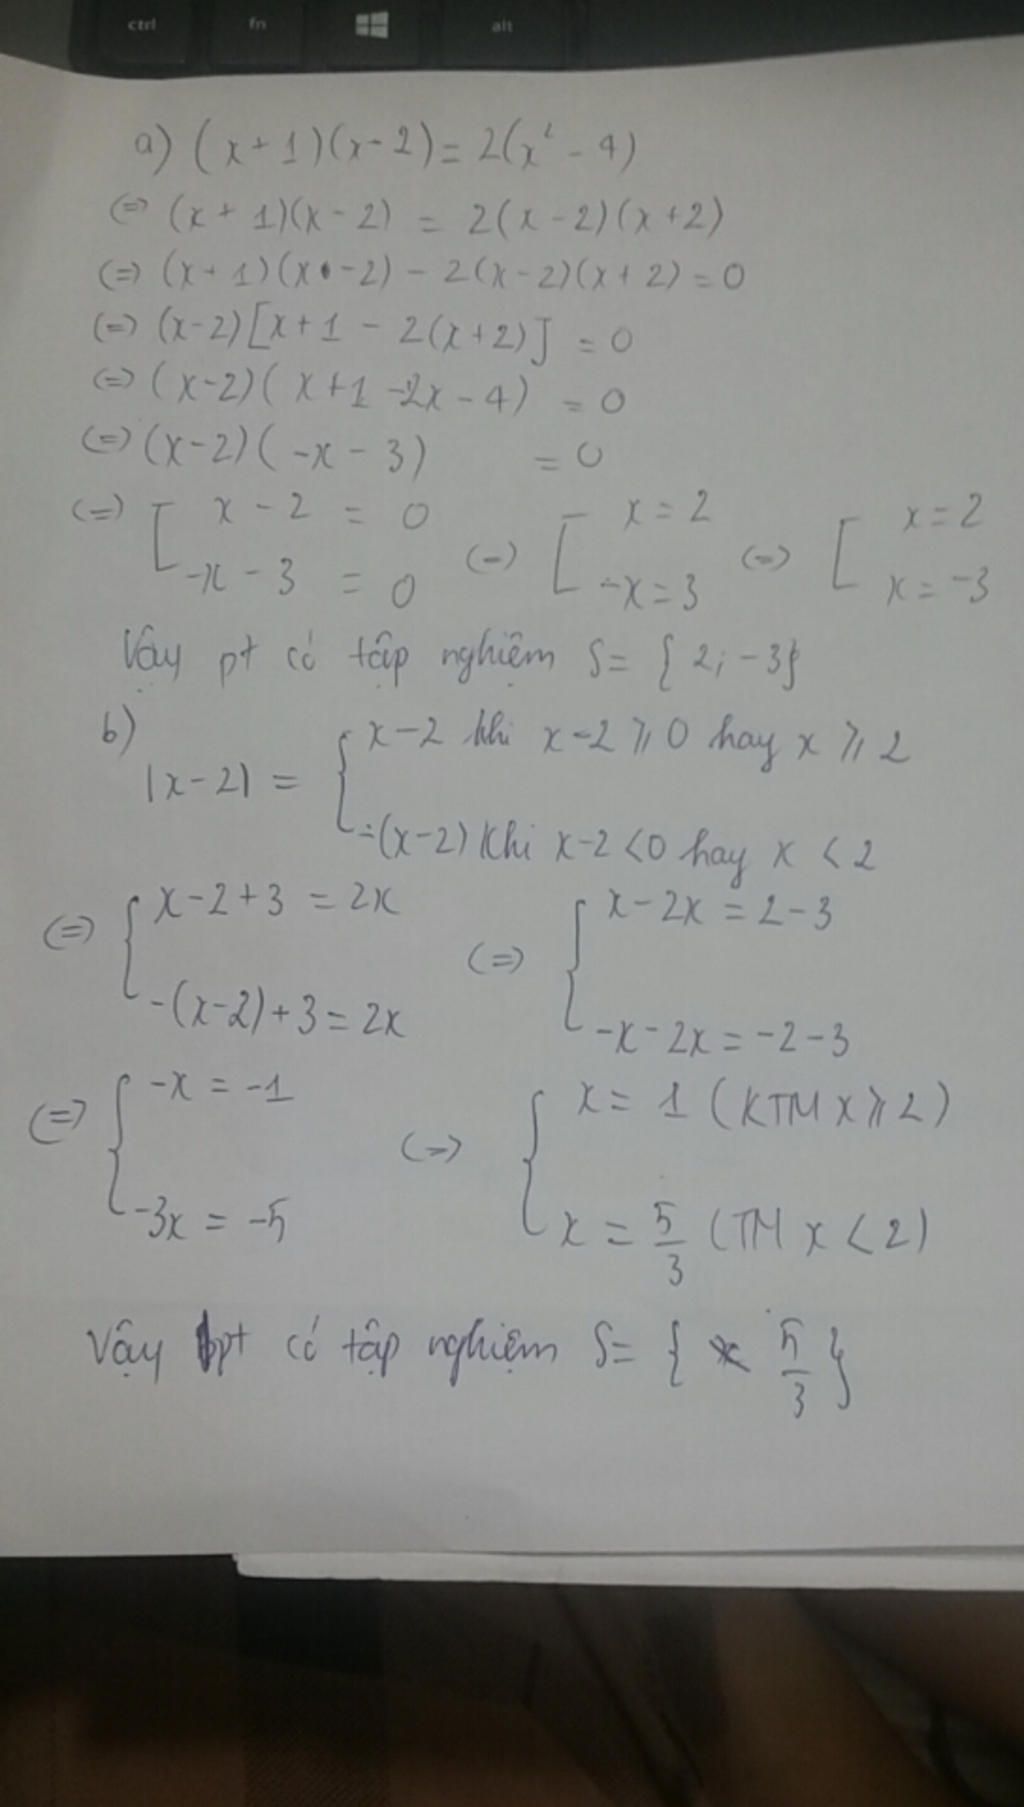 ctrl fn alt
a) (x+1)(x-2)=2(x²-4)
(=) (x+1)(x-2) = 2(x-2)(x+2)
(=) (x+1)(x-2) - 2(x-2)(x+2) = 0
(=) (x-2)[x+1 - 2(x+2)] = 0
(=) (x-2)(x+1-2x-4) = 0
(=) (x-2)(-x-3) = 0
(=) [ x-2 = 0 (=) [ x=2 (=) [ x=2
-x-3 = 0 -x=3 x=-3
Vậy pt có tập nghiệm S= {2;-3}
b)
|x-2| = { x-2 khi x-2 ⩾ 0 hay x ⩾ 2
-(x-2) khi x-2 <0 hay x < 2
(=) { x-2+3 = 2x (=) { x-2x = 2-3
-(x-2)+3 = 2x -x-2x = -2-3
(=) { -x = -1 (=) { x = 1 (KTM x ⩾ 2)
-3x = -5 x = 5/3 (TM x < 2)
Vậy pt có tập nghiệm S= { 5/3 }